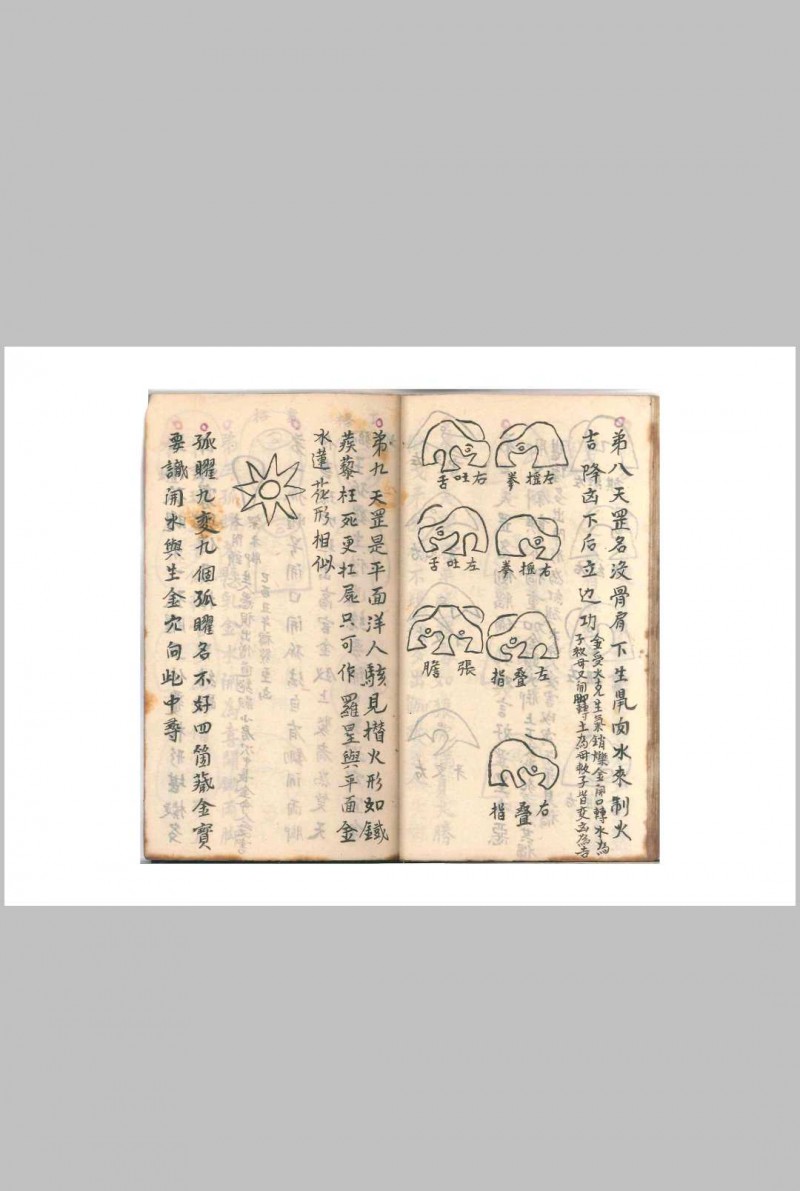 第八天罡名没骨肩下生凥囱水来制火
吉降凶下后立边功
金受火克生气销爍金開口轉水為
子救母又開脚轉土為母救子皆变凶為吉
左捶拳
右吐舌
右捶拳
左吐舌
左叠指
張膽
右叠指
弟九天罡是平面洋人駭見楷火形如鐵
蒺藜枉死更扛屍只可作羅星與平面金
水蓮花形相似
孤曜九变九個孤曜名不好四箇藏金寶
要識開水與生金穴向此中尋